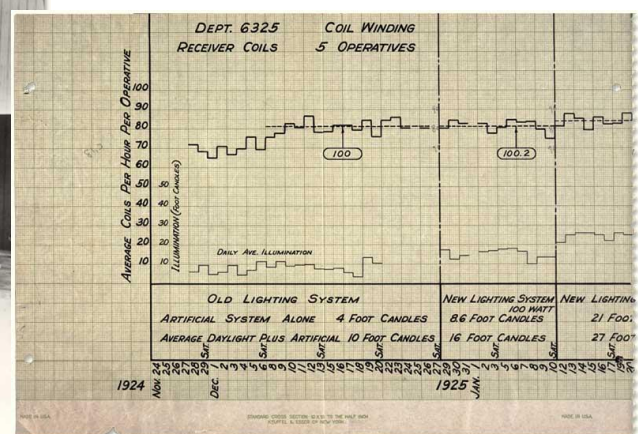 DEPT. 6325 COIL WINDING
RECEIVER COILS 5 OPERATIVES
AVERAGE COILS PER HOUR PER OPERATIVE
100
90
80
70
60
50
40
30
20
10
ILLUMINATION (FOOT CANDLES)
.50
40
30
20
10
100
100.2
DAILY AVE. ILLUMINATION
OLD LIGHTING SYSTEM
ARTIFICIAL SYSTEM ALONE 4 FOOT CANDLES
AVERAGE DAYLIGHT PLUS ARTIFICIAL 10 FOOT CANDLES
NEW LIGHTING SYSTEM
100 WATT
8.6 FOOT CANDLES
16 FOOT CANDLES
NEW LIGHTING
21 FOO
27 FOO
1924
NOV. 24 25 26 27 28 29 SAT. DEC. 1 2 3 4 5 6 SAT. 7 8 9 10 11 12 13 SAT. 14 15 16 17 18 19 20 SAT. 21 22 23 24 25 26 27 SAT.
1925
JAN. 1 2 3 4 5 6 7 8 9 10 SAT. 12 13 14 15 16 17 SAT.
MADE IN U.S.A.
MADE IN U.S.A.